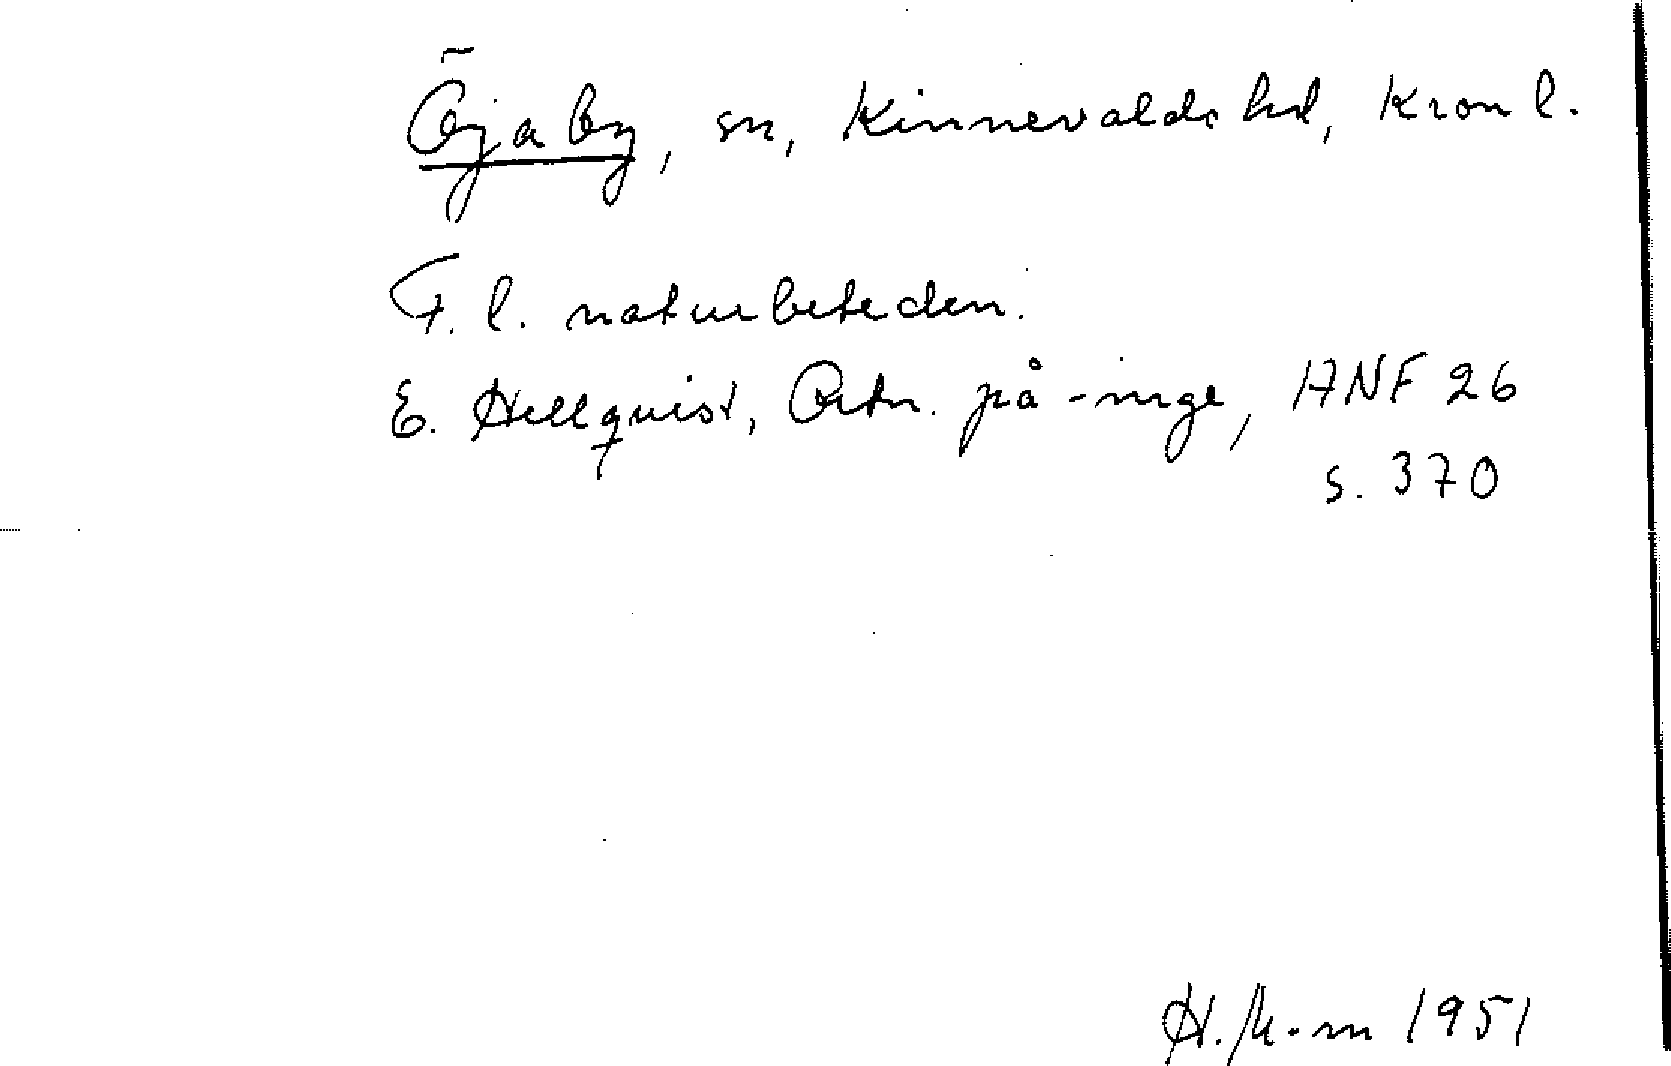 Öjaby, sn, Kinnevalds hd, Kron l.
F. l. naturbeteckn.
E. Hellquist, Ortn. på -inge, ANF 26
s. 370
H. M-m 1951